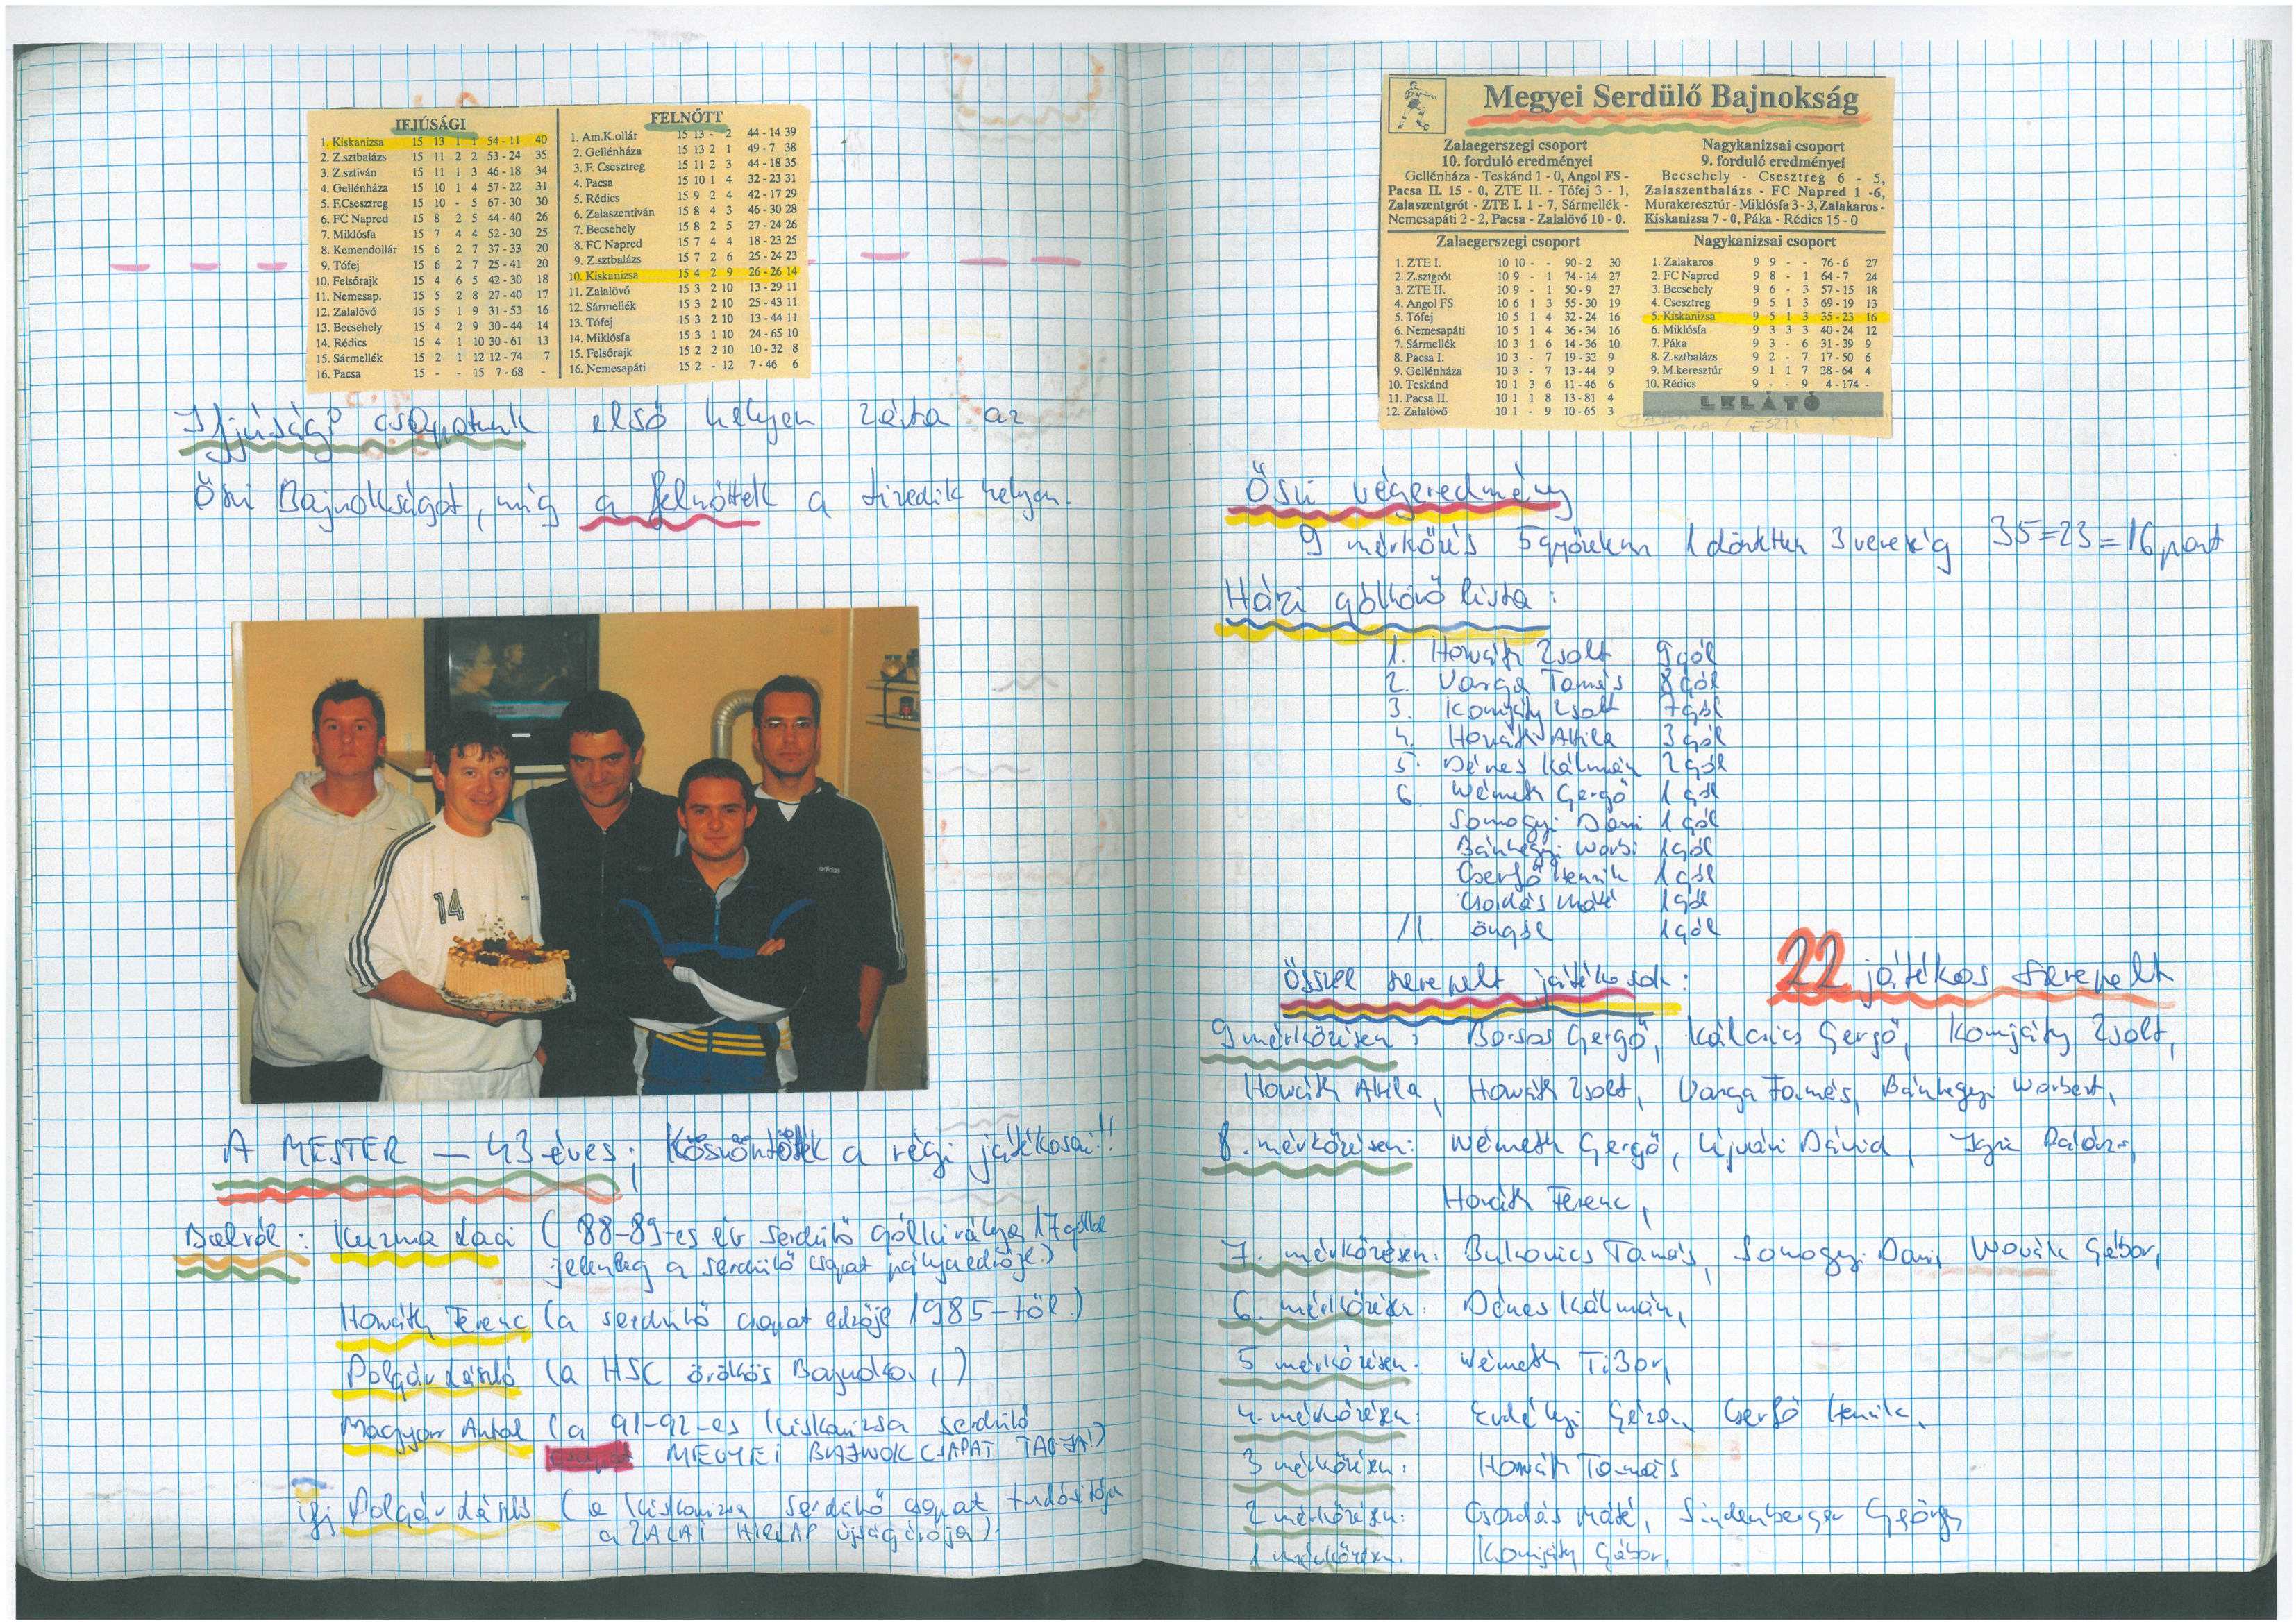 IFJÚSÁGI
1. Kiskanizsa 15 13 1 1 54 - 11 40
2. Z.sztbalázs 15 11 2 2 53 - 24 35
3. Z.sztiván 15 11 1 3 46 - 18 34
4. Gellénháza 15 10 1 4 57 - 22 31
5. F.Csesztreg 15 10 - 5 67 - 30 30
6. FC Napred 15 8 2 5 44 - 40 26
7. Miklósfa 15 7 4 4 52 - 30 25
8. Kemendollár 15 6 2 7 37 - 33 20
9. Tófej 15 6 2 7 25 - 41 20
10. Felsőrajk 15 4 6 5 42 - 30 18
11. Nemesap. 15 5 2 8 27 - 40 17
12. Zalalövő 15 5 1 9 31 - 53 16
13. Becsehely 15 4 2 9 30 - 44 14
14. Rédics 15 4 1 10 30 - 61 13
15. Sármellék 15 2 1 12 12 - 74 7
16. Pacsa 15 - - 15 7 - 68 -
FELNŐTT
1. Am.K.ollár 15 13 - 2 44 - 14 39
2. Gellénháza 15 13 2 1 49 - 7 38
3. F. Csesztreg 15 11 2 3 44 - 18 35
4. Pacsa 15 10 1 4 32 - 23 31
5. Rédics 15 9 2 4 42 - 17 29
6. Zalaszentiván 15 8 4 3 46 - 30 28
7. Becsehely 15 8 2 5 27 - 24 26
8. FC Napred 15 7 4 4 18 - 23 25
9. Z.sztbalázs 15 7 2 6 25 - 24 23
10. Kiskanizsa 15 4 2 9 26 - 26 14
11. Zalalövő 15 3 2 10 13 - 29 11
12. Sármellék 15 3 2 10 25 - 43 11
13. Tófej 15 3 2 10 13 - 44 11
14. Miklósfa 15 3 1 10 24 - 65 10
15. Felsőrajk 15 2 2 10 10 - 32 8
16. Nemesapáti 15 2 - 12 7 - 46 6
Ifjúsági csapatunk első helyen zárta az
Őszi Bajnokságot, míg a felnőttek a tizedik helyen.
14
adidas
A MESTER – 43 éves; Köszöntötték a régi játékosai!!
Balról: Kuzma Laci (88-89-es év serdülő gólkirálya 17 góllal
jelenleg a serdülő csapat pályaedzője.)
Horváth Ferenc (a serdülő csapat edzője 1985-től.)
Polgár László (a HSC örökös Bajnoka,,)
Magyar Antal (a 91-92-es Kiskanizsa serdülő
MEGYEI BAJNOK CSAPAT TAGJA!)
ifj Polgár László (a Kiskanizsa serdülő csapat tudósítója
a ZALAI HIRLAP újságírója).
Megyei Serdülő Bajnokság
Zalaegerszegi csoport
10. forduló eredményei
Gellénháza - Teskánd 1 - 0, Angol FS -
Pacsa II. 15 - 0, ZTE II. - Tófej 3 - 1,
Zalaszentgrót - ZTE I. 1 - 7, Sármellék -
Nemesapáti 2 - 2, Pacsa - Zalalövő 10 - 0.
Nagykanizsai csoport
9. forduló eredményei
Becsehely - Csesztreg 6 - 5,
Zalaszentbalázs - FC Napred 1 -6,
Murakeresztúr - Miklósfa 3 - 3, Zalakaros -
Kiskanizsa 7 - 0, Páka - Rédics 15 - 0
Zalaegerszegi csoport
1. ZTE I. 10 10 - - 90 - 2 30
2. Z.sztgrót 10 9 - 1 74 - 14 27
3. ZTE II. 10 9 - 1 50 - 9 27
4. Angol FS 10 6 1 3 55 - 30 19
5. Tófej 10 5 1 4 32 - 24 16
6. Nemesapáti 10 5 1 4 36 - 34 16
7. Sármellék 10 3 1 6 14 - 36 10
8. Pacsa I. 10 3 - 7 19 - 32 9
9. Gellénháza 10 3 - 7 13 - 44 9
10. Teskánd 10 1 3 6 11 - 46 6
11. Pacsa II. 10 1 1 8 13 - 81 4
12. Zalalövő 10 1 - 9 10 - 65 3
Nagykanizsai csoport
1. Zalakaros 9 9 - - 76 - 6 27
2. FC Napred 9 8 - 1 64 - 7 24
3. Becsehely 9 6 - 3 57 - 15 18
4. Csesztreg 9 5 1 3 69 - 19 13
5. Kiskanizsa 9 5 1 3 35 - 23 16
6. Miklósfa 9 3 3 3 40 - 24 12
7. Páka 9 3 - 6 31 - 39 9
8. Z.sztbalázs 9 2 - 7 17 - 50 6
9. M.keresztúr 9 1 1 7 28 - 64 4
10. Rédics 9 - - 9 4 - 174 -
LELÁTÓ
Őszi végeredmény
9 mérkőzés 5 győzelem 1 döntetlen 3 vereség 35=23=16 pont
Házi góllövő lista:
1. Horváth Zsolt 9 gól
2. Varga Tamás 8 gól
3. Komjáty Zsolt 7 gól
4. Horváth Attila 3 gól
5. Dénes Kálmán 2 gól
6. Németh Gergő 1 gól
Somogyi Dani 1 gól
Bánhegyi Norbi 1 gól
Cserfő Henrik 1 gól
Csordás Máté 1 gól
11. öngól 1 gól
Ősszel szerepelt játékosok: 22 játékos szerepelt
9 mérkőzésen: Borsos Gergő, Kálcsics Gergő, Komjáty Zsolt,
Horváth Attila, Horváth Zsolt, Varga Tamás, Bánhegyi Norbert,
8. mérkőzésen: Németh Gergő, Ujvári Dávid,
Horváth Ferenc,
7. mérkőzésen: Bukovics Tamás, Somogyi Dani, Novák Gábor,
6. mérkőzésen: Dénes Kálmán,
5 mérkőzésen: Németh Tibor,
4. mérkőzésen: Erdélyi Géza, Cserfő Henrik,
3 mérkőzésen: Horváth Tamás
2 mérkőzésen: Csordás Máté, Sindenberger György
1 mérkőzésen: Komjáty Gábor,